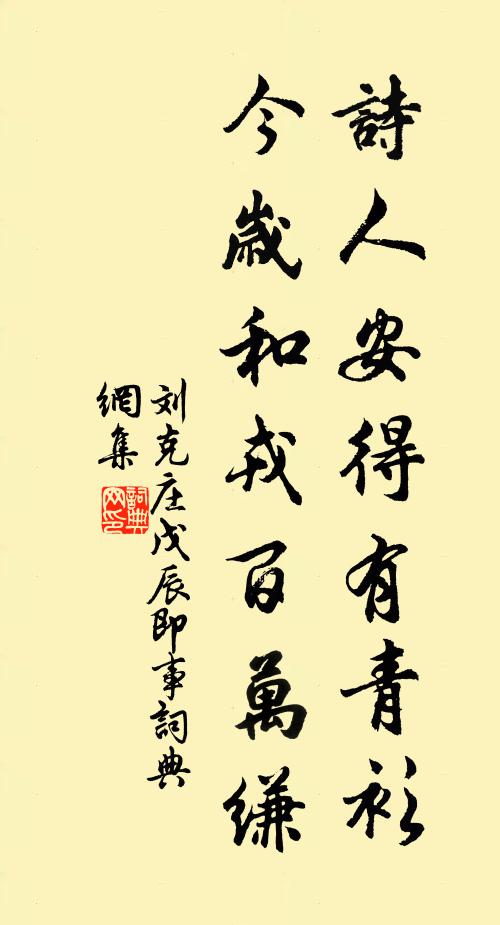 詩人安得有青衫
今歲和戎百萬縑
刘克庄戊辰即事詞典
網集
詞典网印